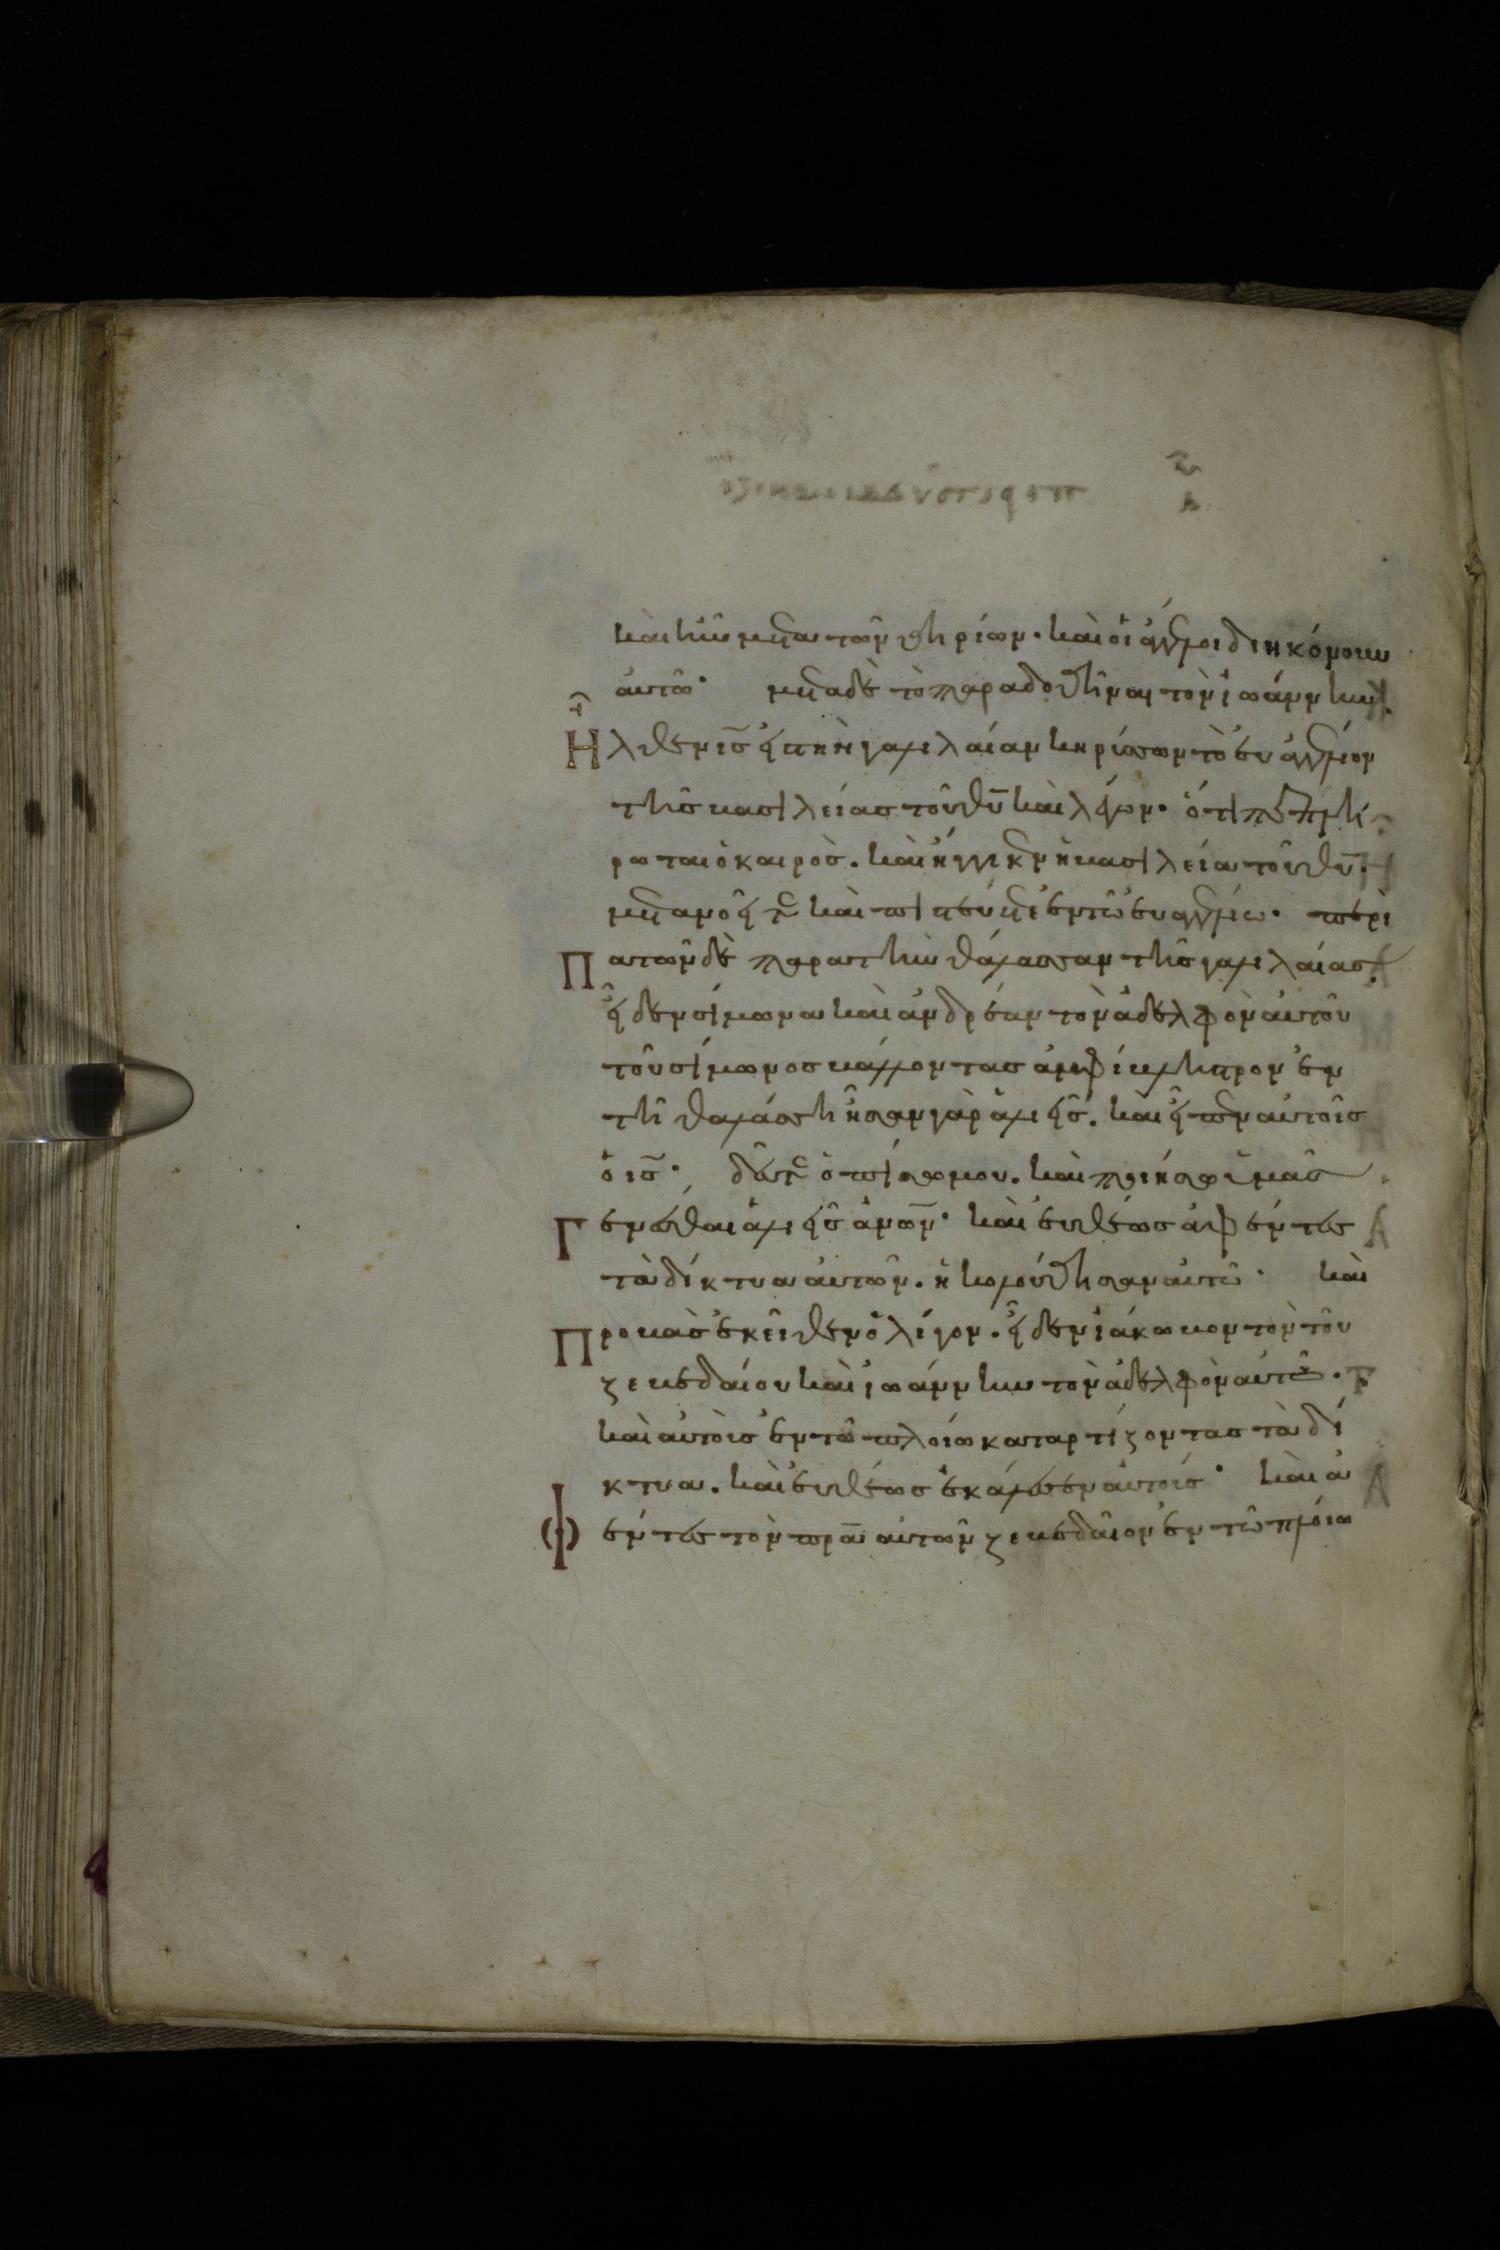 καὶ ἦν μετα τῶν θηρίων. καὶ οἱ ἄγγελοι διηκόνουν
αὐτῶ· μετα δὲ τὸ παραδοθῆναι τὸν ἰωάννην
Ηλθεν ις εἰς τὴν γαλιλαίαν κηρύσσων τὸ ευαγγέλιον
τῆς βασιλείας τοῦ θυ καὶ λέγων· ὅτι πεπλη
ρωται ὁ καιρὸς. καὶ ἤγγικεν ἡ βασιλεία τοῦ θυ.
μετανοεῖτε καὶ πιστεύετε ἐν τῶ ευαγγελίω· περι
Πατῶν δὲ παρα τὴν θάλασσαν τῆς γαλιλαίας.
εἶδεν σίμωνα καὶ ἀνδρέαν τὸν ἀδελφὸν αὐτοῦ
τοῦ σίμωνος βάλλοντας ἀμφίβληστρον ἐν
τῆ θαλάσση ἦσαν γὰρ ἁλιεῖς. καὶ εἶπεν αὐτοῖς
ὁ ις· δεῦτε ὀπίσω μου. καὶ ποιήσω ὑμᾶς
Γενέσθαι ἁλιεῖς ἀνων· καὶ ἐυθέως ἀφέντες
τὰ δίκτυα αὐτῶν. ἠκολούθησαν αὐτῶ· καὶ
Προβὰς ἐκεῖθεν ὀλίγον. εἶδεν ἰάκωβον τὸν τοῦ
ζεβεδαίου καὶ ἰωάννην τὸν ἀδελφὸν αὐτοῦ.
καὶ αὐτοὺς ἐν τῶ πλοίω καταρτίζοντας τὰ δί
κτυα. καὶ ἐυθέως ἐκάλεσεν αὐτούς· καὶ ἀ
Φέντες τὸν πρα αὐτῶν ζεβεδαῖον ἐν τῶ πλοίω